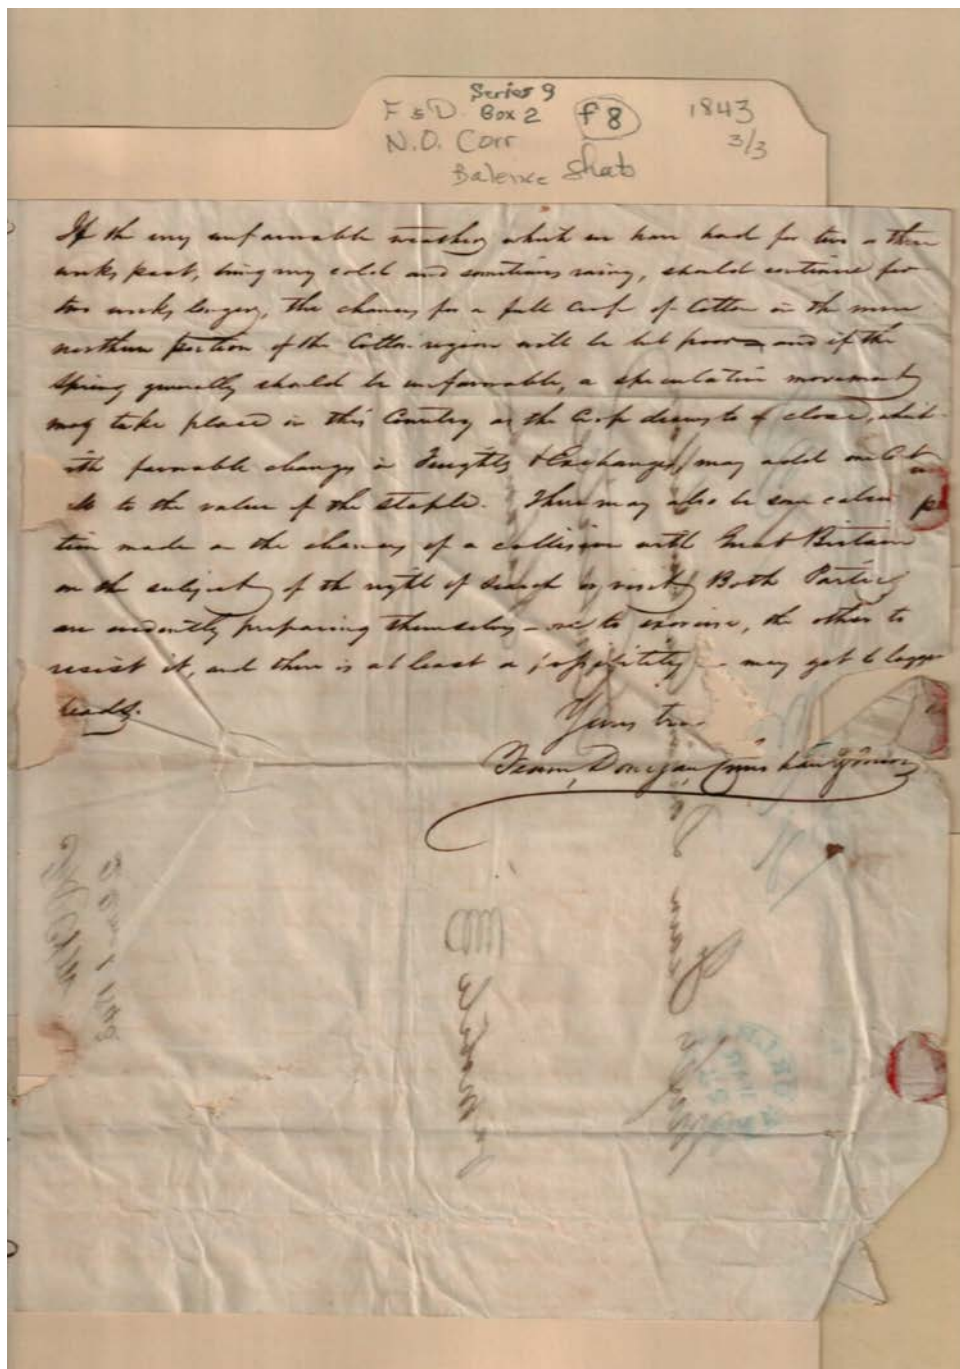 Series 9
F & D. Box 2 f8 1843
N.O. Corr 3/3
Balence Shab
If the very unfavorable weather which we have had for two or three
weeks past, being very cold and sometimes rainy, should continue for
two weeks longer, the chances for a full Crop of Cotton in the more
northern portion of the Cotton region will be but poor and if the
Spring generally should be unfavorable, a speculative movement
may take place in this Country as the Crop draws to a close, which
with favorable changes in Freights & Exchanges, may add
to the value of the staple. There may also be some
tion made on the chances of a collision with Great Britain
on the subject of the right of Search or visit, Both Parties
are evidently preparing themselves one to exercise, the other to
resist it, and there is at least a may get to logger
heads.
Yours
Fearn, Donegan